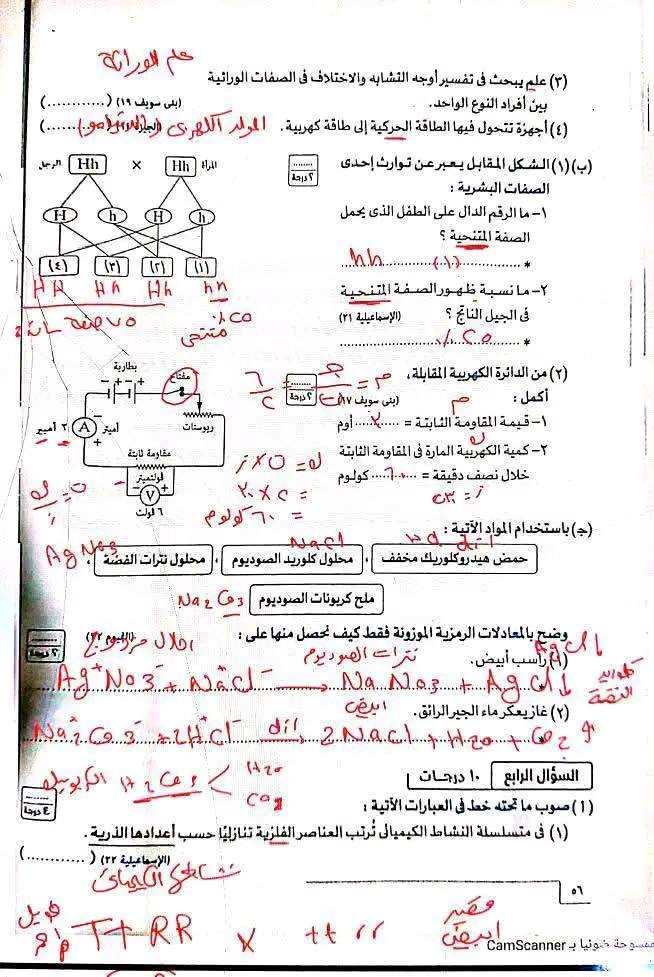 علم الوراثة
(٣) علم يبحث فى تفسير أوجه التشابه والاختلاف فى الصفات الوراثية
بين أفراد النوع الواحد. (بنى سويف ١٩) (............)
(٤) أجهزة تتحول فيها الطاقة الحركية إلى طاقة كهربية.
المولد الكهربى (الدينامو)
(ب) (١) الشكل المقابل يعبر عن توارث إحدى
الصفات البشرية :
٢ درجة
الرجل Hh × Hh المرأة
H h H h
(٤) (٣) (٢) (١)
HH Hh Hh hh
١- ما الرقم الدال على الطفل الذى يحمل
الصفة المتنحية ؟
* hh (١)
٢- ما نسبة ظهور الصفة المتنحية
فى الجيل الناتج ؟ (الإسماعيلية ٢١)
* ٢٥ ٪
متنحى ٢٥ ٪
(٢) من الدائرة الكهربية المقابلة،
أكمل : (بنى سويف ١٧) ٢ درجة
١- قيمة المقاومة الثابتة = ...٣... أوم
٢- كمية الكهربية المارة فى المقاومة الثابتة
خلال نصف دقيقة = ...٦٠... كولوم
بطارية
مفتاح
ريوستات
أميتر A ٢ أمبير
مقاومة ثابتة
ڤولتميتر
V
٦ ڤولت
ك = ت × ز
= ٢ × ٣٠
= ٦٠ كولوم
(جـ) باستخدام المواد الآتية :
HCl dil NaCl AgNO3
حمض هيدروكلوريك مخفف ، محلول كلوريد الصوديوم ، محلول نترات الفضة ،
ملح كربونات الصوديوم Na2CO3
وضح بالمعادلات الرمزية الموزونة فقط كيف نحصل منها على : (الفيوم ٢٢) ٢ درجة
احلال مزدوج
(١) راسب أبيض. AgCl↓
نترات الصوديوم
كلوريد الفضة
Ag+NO3- + Na+Cl- → NaNO3 + AgCl↓
ابيض
(٢) غاز يعكر ماء الجير الرائق.
Na2+CO3- + 2H+Cl- dil→ 2NaCl + H2O + CO2↑
H2CO3 < H2O
CO2
السؤال الرابع ١٠ درجات
(١) صوب ما تحته خط فى العبارات الآتية : ٤ درجة
(١) فى متسلسلة النشاط الكيميائى تُرتب العناصر الفلزية تنازليًا حسب أعدادها الذرية.
(الإسماعيلية ٢٢) (............)
نشاطها الكيميائى
٥٦
طويل TTRR × ttrr قصير
ابيض
الممسوحة ضوئيا بـ CamScanner